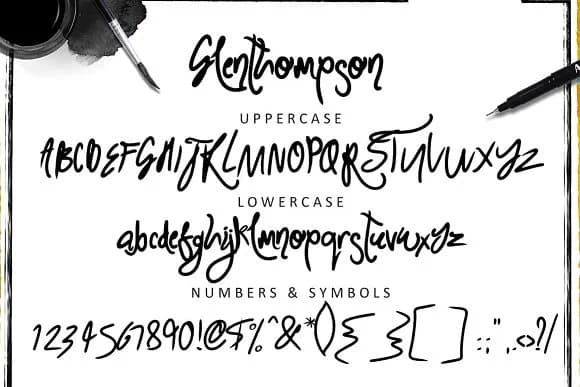 Glenthompson
UPPERCASE
ABCDEFGHIJKLMNOPQRSTUVWXYZ
LOWERCASE
abcdefghijklmnopqrstuvwxyz
NUMBERS & SYMBOLS
1234567890!@$%^&*(){}[]:;",.<>?/